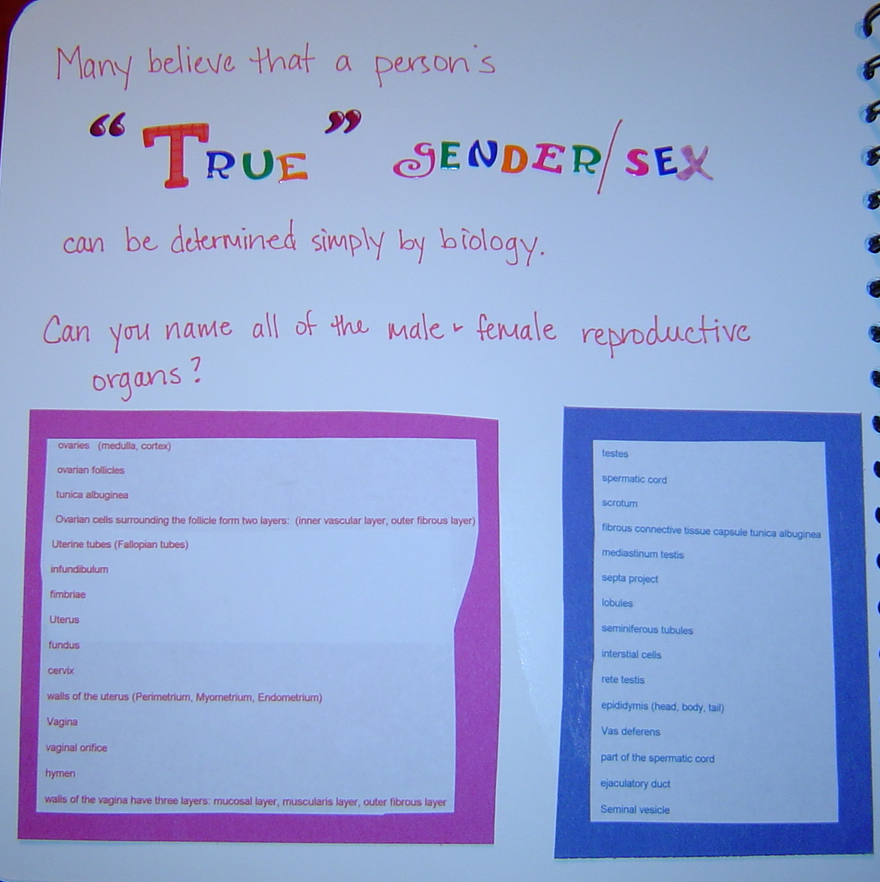 Many believe that a person's
“TRUE” GENDER/SEX
can be determined simply by biology.
Can you name all of the male & female reproductive
organs?
ovaries (medulla, cortex)
ovarian follicles
tunica albuginea
Ovarian cells surrounding the follicle form two layers: (inner vascular layer, outer fibrous layer)
Uterine tubes (Fallopian tubes)
infundibulum
fimbriae
Uterus
fundus
cervix
walls of the uterus (Perimetrium, Myometrium, Endometrium)
Vagina
vaginal orifice
hymen
walls of the vagina have three layers: mucosal layer, muscularis layer, outer fibrous layer
testes
spermatic cord
scrotum
fibrous connective tissue capsule tunica albuginea
mediastinum testis
septa project
lobules
seminiferous tubules
interstial cells
rete testis
epididymis (head, body, tail)
Vas deferens
part of the spermatic cord
ejaculatory duct
Seminal vesicle